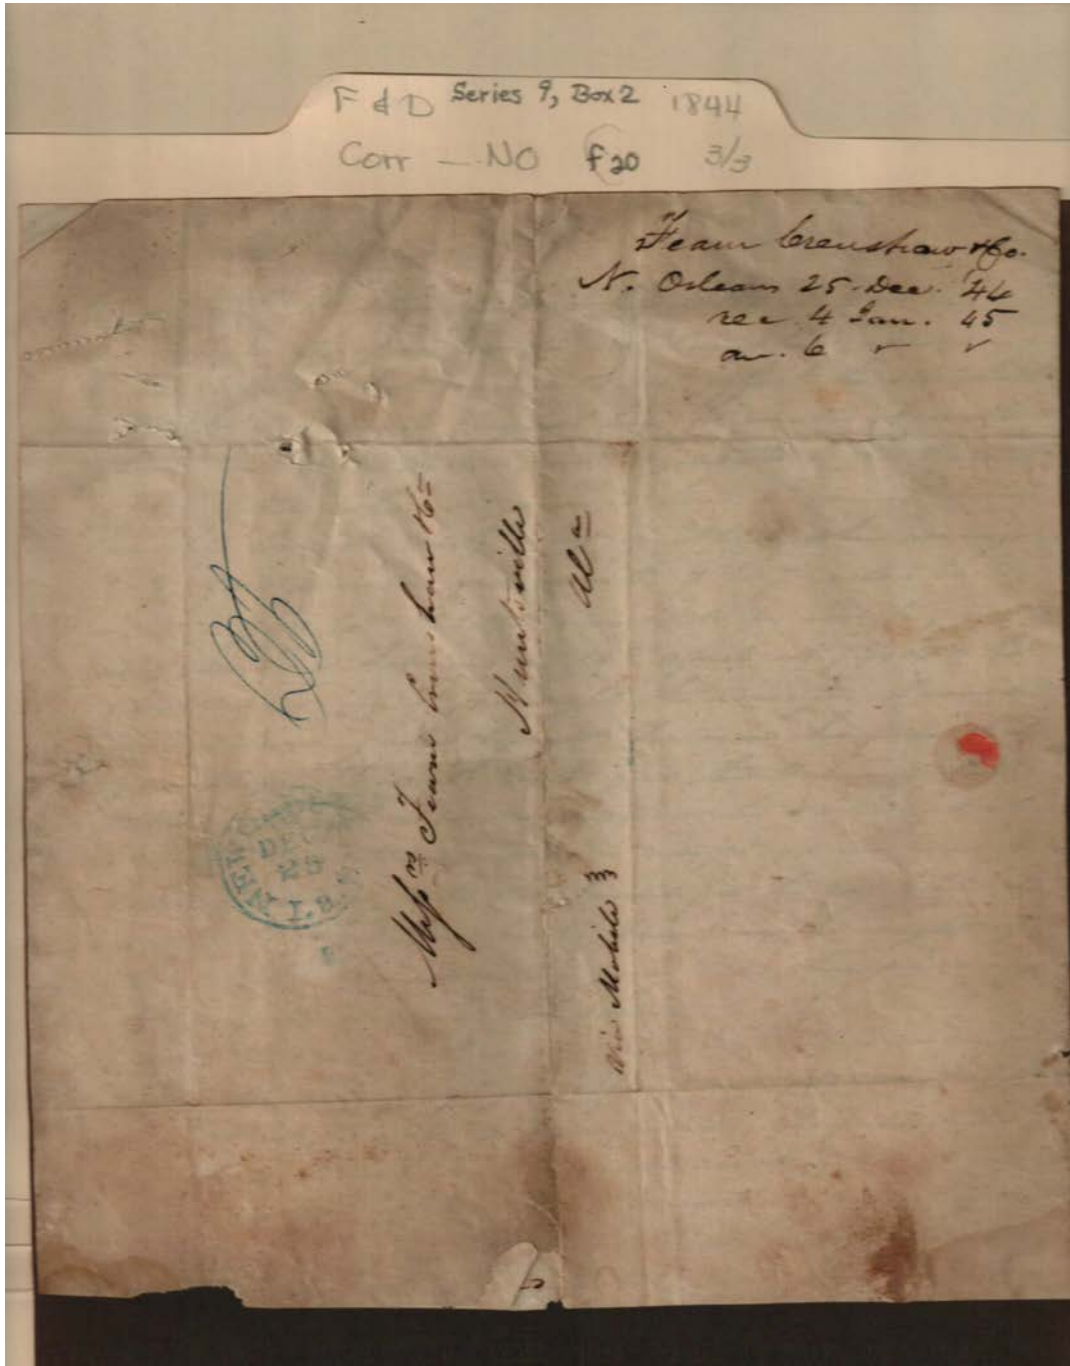 F & D Series 9, Box 2 1844
Corr — NO F20 3/3
Fearn Crenshaw & Co.
N. Orleans 25 Dec. '44
rec 4 Jan. 45
an. 6 " "
Mess rs Fearn Crenshaw & Co
Huntsville
Ala
Via Mobile
NEW
DEC
25